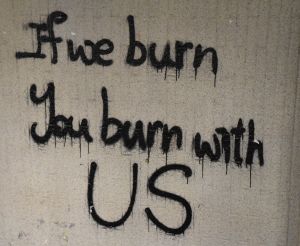 If we burn
You burn with
US